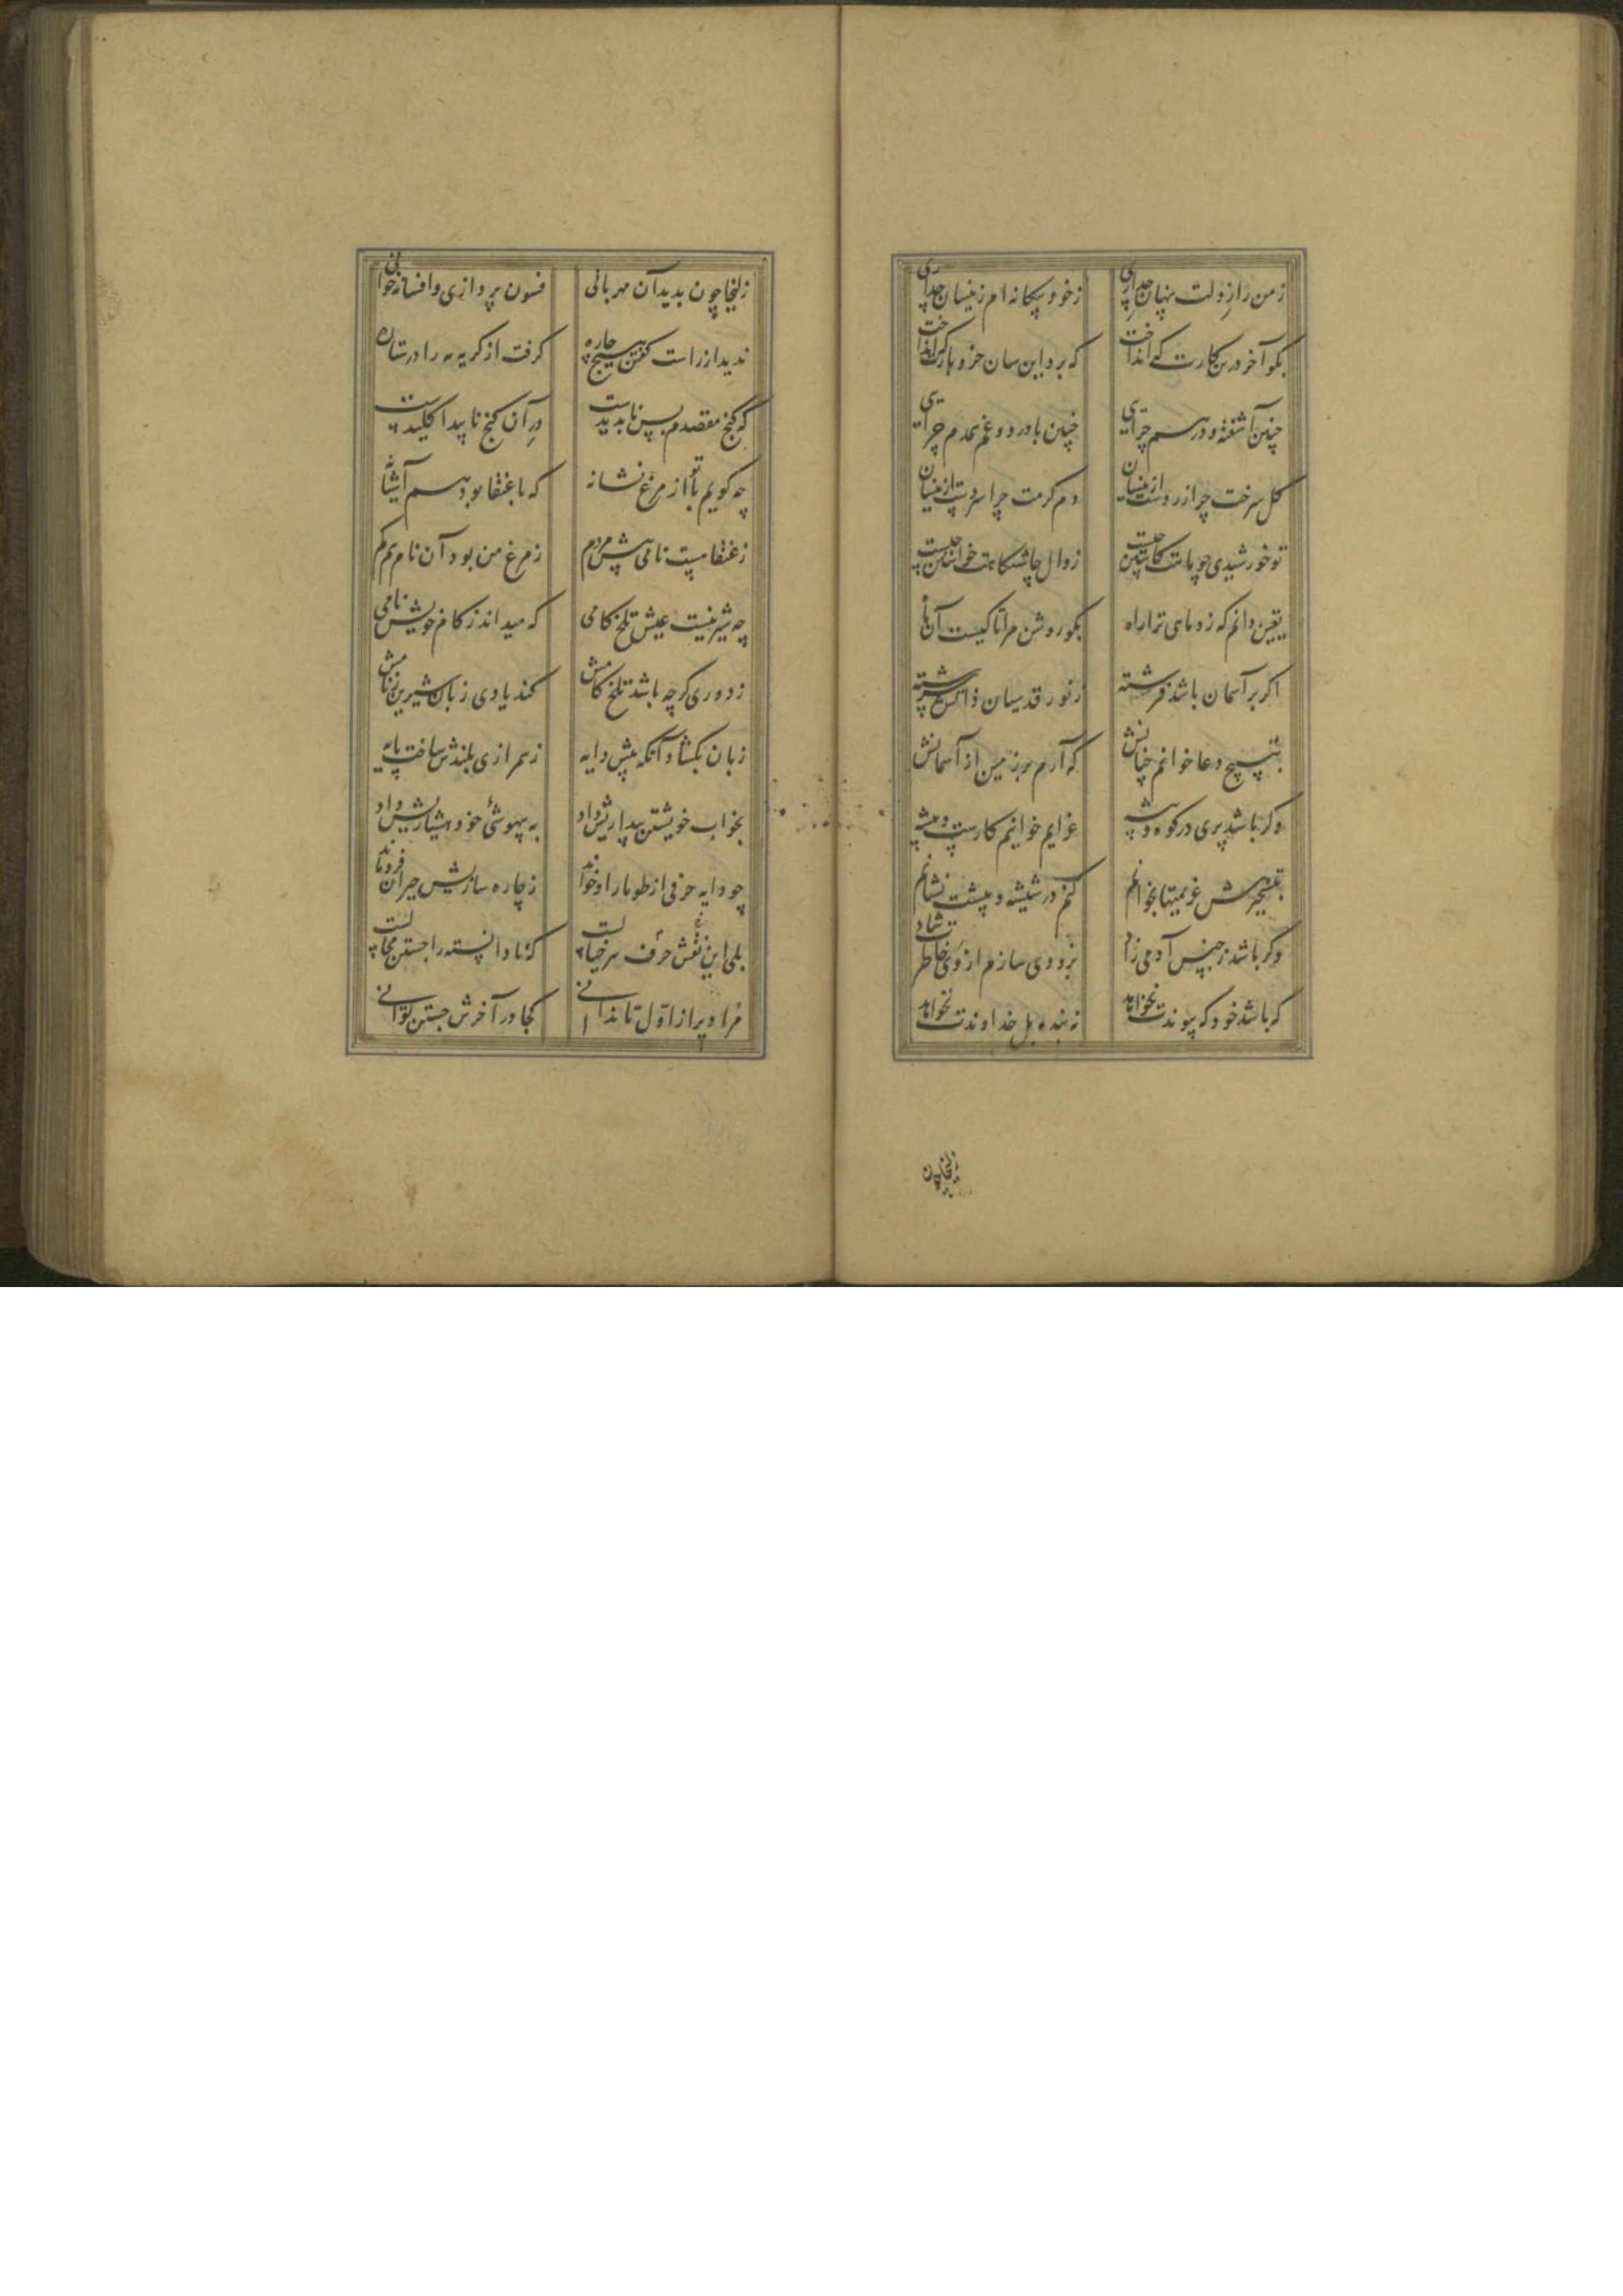 ز من راز دلت پنهان چرا داری
ز خود بیگانه ام زینسان چرا داری
بکو آخر درین کارت که انداخت
که برد این سان خز و بارت کرا انداخت
چنین آشفته و درهم چرایی
چنین با درد و غم همدم چرایی
کل سرخت چرا زردست ازینسان
دم کرمت چرا سردست ازینسان
تو خورشیدی چو ماهت کاستن چیست
زوال چاشتکاهت خواستن چیست
یقین دانم که زد ماهی ترا راه
بکو روشن مرا تا کیست آن ماه
اکر بر آسمان باشد فرشته
ز نور قدسیان ذاتش سرشته
بتسبیح و دعا خوانم چنانش
که آرم بر زمین از آسمانش
وکر باشد پری در کوه و بیشه
عزایم خوانیم کارست و پیشه
بتسخیرش عزیمتها بخوانم
کنم در شیشه و پیشت نشانم
وکر باشد ز جنس آدمی زاد
بزودی سازم از وی خاطرت شاد
که باشد خود که پیوندت نخواهد
نه بنده بل خداوندت نخواهد
زلیخا چون
زلیخا چون بدید آن مهربانی
فسون پردازی و افسانه خوانی
ندید از راست کفتن هیچ چاره
کرفت از کریه مه را در ستاره
که کنج مقصدم بس ناپدیدست
در آن کنج ناپیدا کلیدست
چه کویم با تو از مرغ نشانه
که با عنقا بود هم آشیانه
ز عنقا هست نامی پیش مردم
ز مرغ من بود آن نام هم کم
چه شیرینست عیش تلخ کامی
که میداند ز کام خویش نامی
ز دوری کرچه باشد تلخ کامش
کند یادی زبان شیرین ز نامش
زبان بکشاد آنکه پیش دایه
ز همرازی بلندش ساخت پایه
بخواب خویشتن بیداریش داد
به بیهوشی خود هشیاریش داد
چو دایه حرفی از طومار او خواند
ز چاره سازیش حیران فرو ماند
بلی این نقش حرف هر خیالست
که نادانسته را جستن محالست
مراد را ز اول تا ندانی
کجا در آخرش جستن توانی